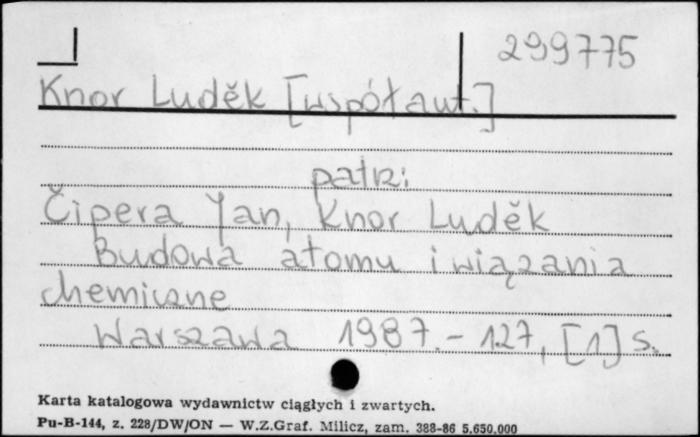 299775
Knor Luděk [współaut.]
patrz:
Čipera Jan, Knor Luděk
Budowa atomu i wiązania
chemiczne
Warszawa 1987. - 127, [1] s.
Karta katalogowa wydawnictw ciągłych i zwartych.
Pu-B-144, z. 228/DW/ON — W.Z.Graf. Milicz, zam. 388-86 5.650.000